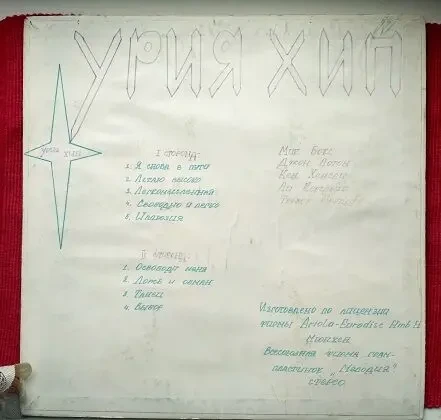 УРИЯ ХИП
УРИЯ ХИП
I СТОРОНА:
1. Я снова в пути
2. Летаю высоко
3. Легкомысленный
4. Свободно и легко
5. Иллюзия
Мик Бокс
Джон Лотон
Кен Хенсли
Ли Керслейк
II СТОРОНА:
1. Освободи меня
2. Ложь и обман
3. Танец
4. Выбор
Изготовлено по лицензии
фирмы Ariola-Eurodisc GmbH
Мюнхен
Всесоюзная фирма грам-
пластинок "Мелодия"
стерео